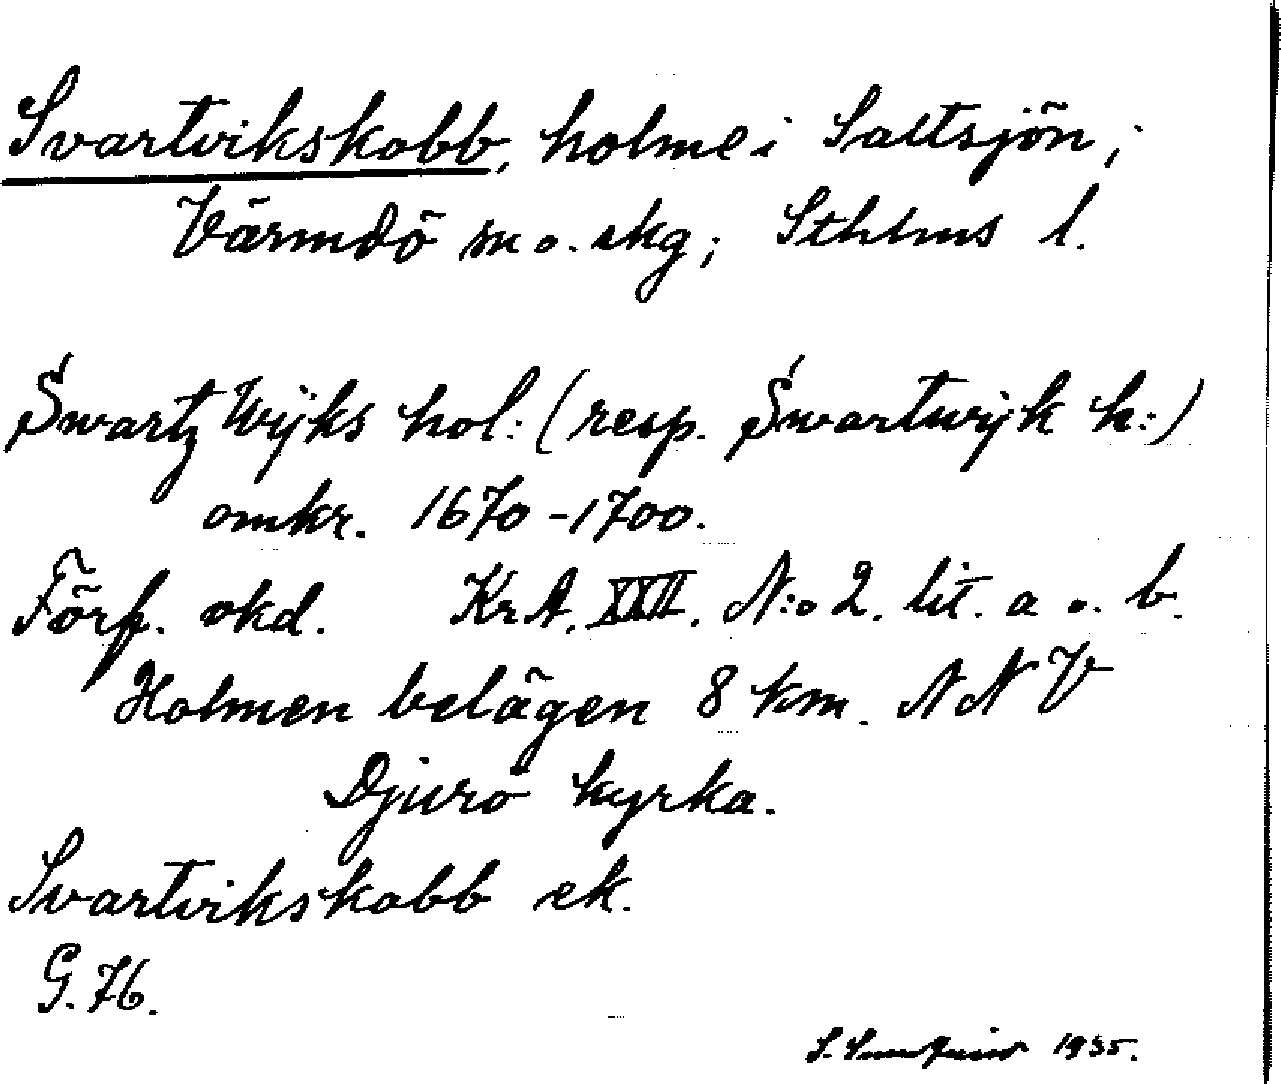 Svartvikskobb, holme i Saltsjön;
Värmdö sn o. skg; Sthlms l.
Swartz Wijks hol: (resp. Swartwijk h:)
omkr. 1670-1700.
Förf. okd. Kr.A. XXII. N:o 2. lit. a o. b.
Holmen belägen 8 km. NNV
Djurö kyrka.
Svartvikskobb ek.
G. 76.
S. 1935.